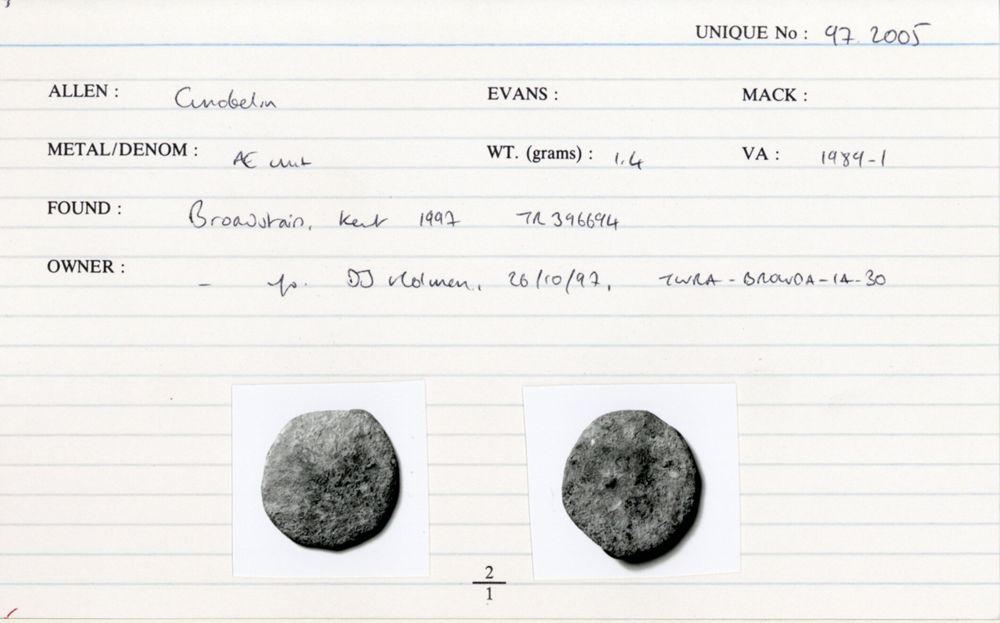 UNIQUE No : 97.2005
ALLEN : Cunobelin EVANS : MACK :
METAL/DENOM : Æ unit WT. (grams) : 1.4 VA : 1989-1
FOUND : Broadstairs, Kent 1997 TR 396694
OWNER : - DJ Holman, 26/10/97,
2
1